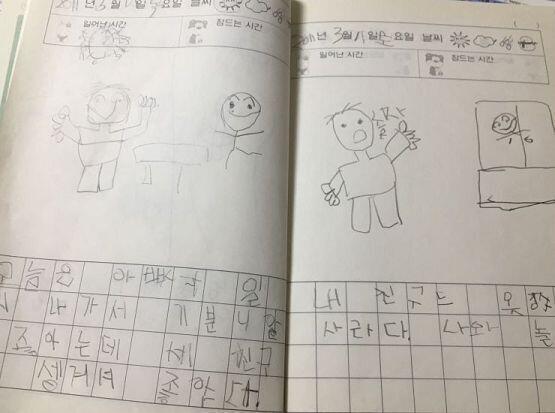 2011년 3월 1일 요일 날씨
일어난시간 잠드는 시간
늘은 아빠 일
나가서 기분니 안
좋아는데 새 친구
생겨여 좋았다.
2011년 3월 1일 요일 날씨
일어난 시간 잠드는 시간
내 친구느 옷장
사라다. 나와 놀